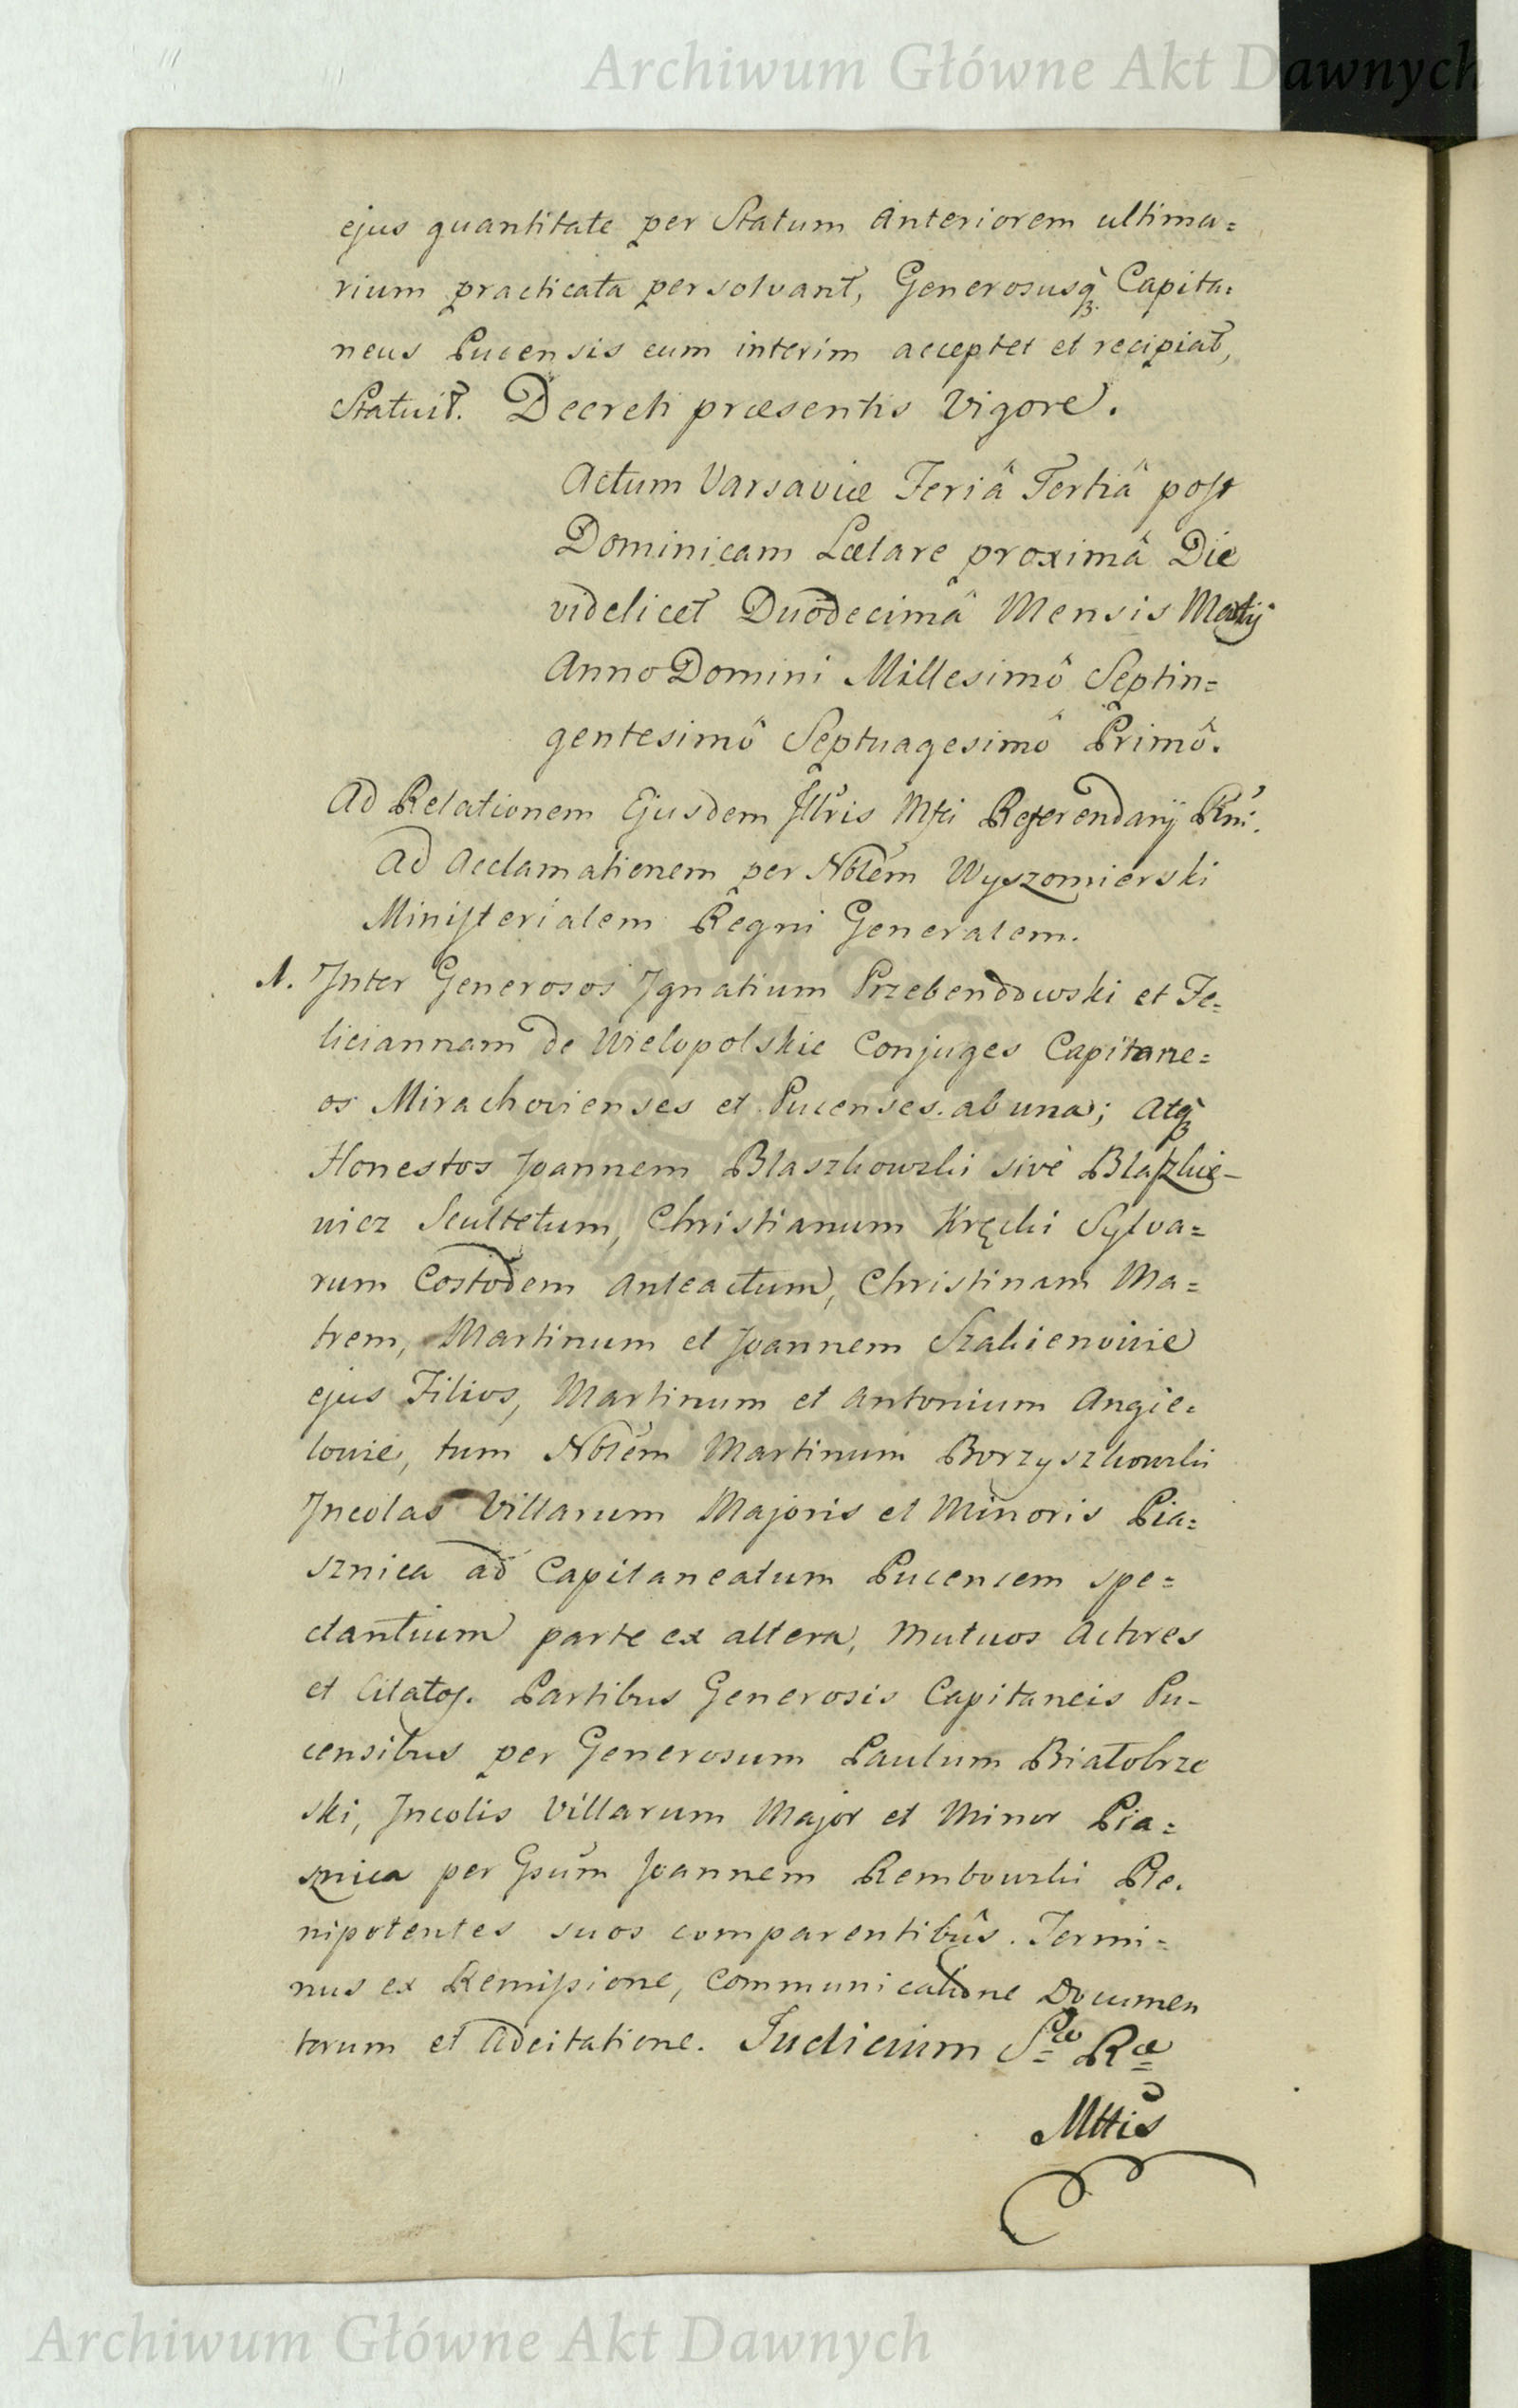 Archiwum Główne Akt Dawnych
ejus quantitate per Statum Anteriorem ultima=
rium practicata persolvant, Generosusq₃ Capita=
neus Pucensis eum interim acceptet et recipiat,
Statuit. Decreti præsentis Vigore.
Actum Varsaviæ Feriâ Tertiâ post
Dominicam Lætare proximâ Die
videlicet Duodecimâ Mensis Martij
Anno Domini Millesimô Septin=
gentesimô Septuagesimô Primô.
Ad Relationem Ejusdem Illris Mfci Referendarij Rni.
Ad Acclamationem per Nobĺem Wyszomierski
Ministerialem Regni Generalem.
1. Inter Generosos Ignatium Przebendowski et Fe=
liciannam de Wielopolskie Conjuges Capitane=
os Mirachovienses et Pucenses ab una; Atq₃
Honestos Joannem Blaszkowski sivè Blaszkie-
wicz Scultetum, Christianum Kręcki Sylva=
rum Costodem Anteactum, Christinam Ma=
trem, Martinum et Joannem Szalienowie
ejus Filios, Martinum et Antonium Angie=
lowie, tum Nobĺem Martinum Borzyszkowski
Incolas Villarum Majoris et Minoris Pia=
sznica ad Capitaneatum Pucensem spe=
ctantium parte ex altera, Mutuos Actores
et Citatos. Partibus Generosis Capitaneis Pu-
censibus per Generosum Paulum Białobrze
ski, Incolis Villarum Major et Minor Pia=
sznica per Gsum Joannem Rembowski Ple=
nipotentes suos comparentibûs. Termi=
nus ex Remissione, Communicatione Documen
torum et Adcitatione. Judicium Sæ Ræ
Mttis
Archiwum Główne Akt Dawnych